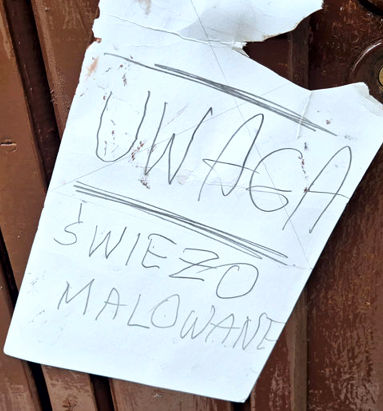 UWAGA
ŚWIEZO
MALOWANE